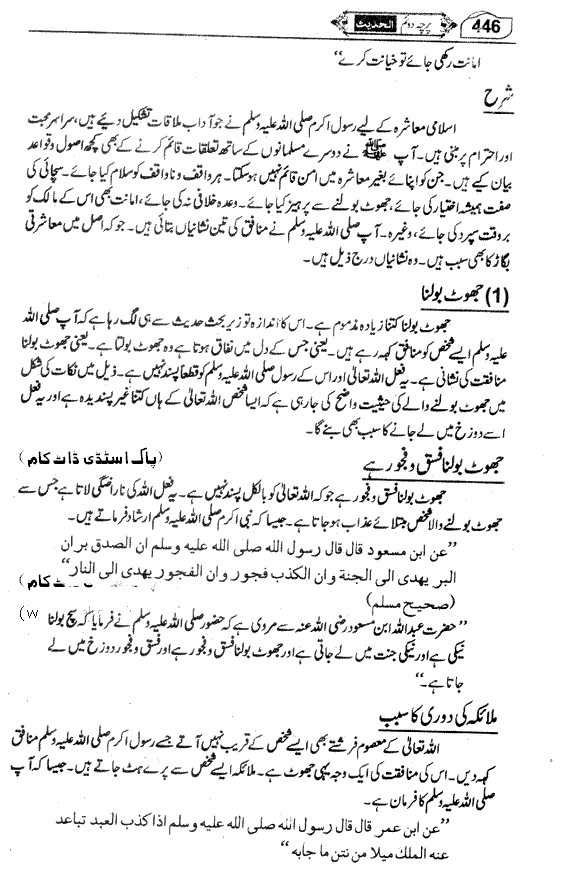 446 الحدیث پرچہ دوئم
امانت رکھی جائے تو خیانت کرے“
شرح
اسلامی معاشرہ کے لیے رسول اکرم صلی اللہ علیہ وسلم نے جو آداب ملاقات تشکیل دیئے ہیں، سراسر محبت
اور احترام پر مبنی ہیں۔ آپ ﷺ نے دوسرے مسلمانوں کے ساتھ تعلقات قائم کرنے کے بھی کچھ اصول و قواعد
بیان کیے ہیں۔ جن کو اپنائے بغیر معاشرہ میں امن قائم نہیں ہوسکتا۔ ہر واقف و ناواقف کو سلام کیا جائے۔ سچائی کی
صفت ہمیشہ اختیار کی جائے، جھوٹ بولنے سے پرہیز کیا جائے۔ وعدہ خلافی نہ کی جائے، امانت بھی اس کے مالک کو
بروقت سپرد کی جائے، وغیرہ۔ آپ صلی اللہ علیہ وسلم نے منافق کی تین نشانیاں بتائی ہیں۔ جو کہ اصل میں معاشرتی
بگاڑ کا بھی سبب ہیں۔ وہ نشانیاں درج ذیل ہیں۔
(1) جھوٹ بولنا
جھوٹ بولنا کتنا زیادہ مذموم ہے۔ اس کا اندازہ تو زیر بحث حدیث سے ہی لگ رہا ہے کہ آپ صلی اللہ
علیہ وسلم ایسے شخص کو منافق کہہ رہے ہیں۔ یعنی جس کے دل میں نفاق ہوتا ہے وہ جھوٹ بولتا ہے۔ یعنی جھوٹ بولنا
منافقت کی نشانی ہے۔ یہ فعل اللہ تعالیٰ اور اس کے رسول صلی اللہ علیہ وسلم کو قطعاً پسند نہیں ہے۔ ذیل میں نکات کی شکل
میں جھوٹ بولنے والے کی حیثیت واضح کی جارہی ہے کہ ایسا شخص اللہ تعالیٰ کے ہاں کتنا غیر پسندیدہ ہے اور یہ فعل
اسے دوزخ میں لے جانے کا سبب بھی بنے گا۔
جھوٹ بولنا فسق و فجور ہے (پاک اسٹڈی ڈاٹ کام)
جھوٹ بولنا فسق و فجور ہے جو کہ اللہ تعالیٰ کو بالکل پسند نہیں ہے۔ یہ فعل اللہ کی ناراضگی لاتا ہے جس سے
جھوٹ بولنے والا شخص مبتلائے عذاب ہوجاتا ہے۔ جیسا کہ نبی اکرم صلی اللہ علیہ وسلم ارشاد فرماتے ہیں۔
”عن ابن مسعود قال قال رسول الله صلى الله عليه وسلم ان الصدق بر ان
البر يهدى الى الجنة وان الكذب فجور وان الفجور يهدى الى النار“ کام)
(صحيح مسلم)
”حضرت عبداللہ ابن مسعود رضی اللہ عنہ سے مروی ہے کہ حضور صلی اللہ علیہ وسلم نے فرمایا کہ سچ بولنا (w
نیکی ہے اور نیکی جنت میں لے جاتی ہے اور جھوٹ بولنا فسق و فجور ہے اور فسق و فجور دوزخ میں لے
جاتا ہے۔“
ملائکہ کی دوری کا سبب
اللہ تعالیٰ کے معصوم فرشتے بھی ایسے شخص کے قریب نہیں آتے جسے رسول اکرم صلی اللہ علیہ وسلم منافق
کہہ دیں۔ اس کی منافقت کی ایک وجہ یہی جھوٹ ہے۔ ملائکہ ایسے شخص سے پرے ہٹ جاتے ہیں۔ جیسا کہ آپ
صلی اللہ علیہ وسلم کا فرمان ہے۔
”عن ابن عمر قال قال رسول الله صلى الله عليه وسلم اذا كذب العبد تباعد
عنه الملك ميلا من نتن ما جابه“